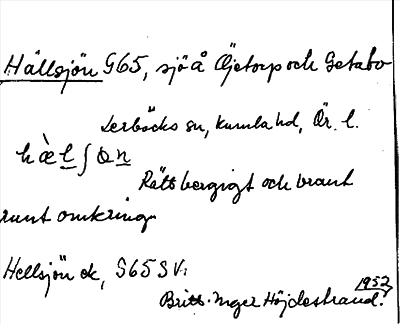 Hällsjön G65, sjö å Öjetorp och Getabo
Lerbäcks sn, Kumla hd, Ör. l.
hæ̀l̲ʃɵn̲
Rätt bergigt och brant
runt omkring.
Hellsjön ek, S65SV.
1952
Britt-Inger Höjdestrand.